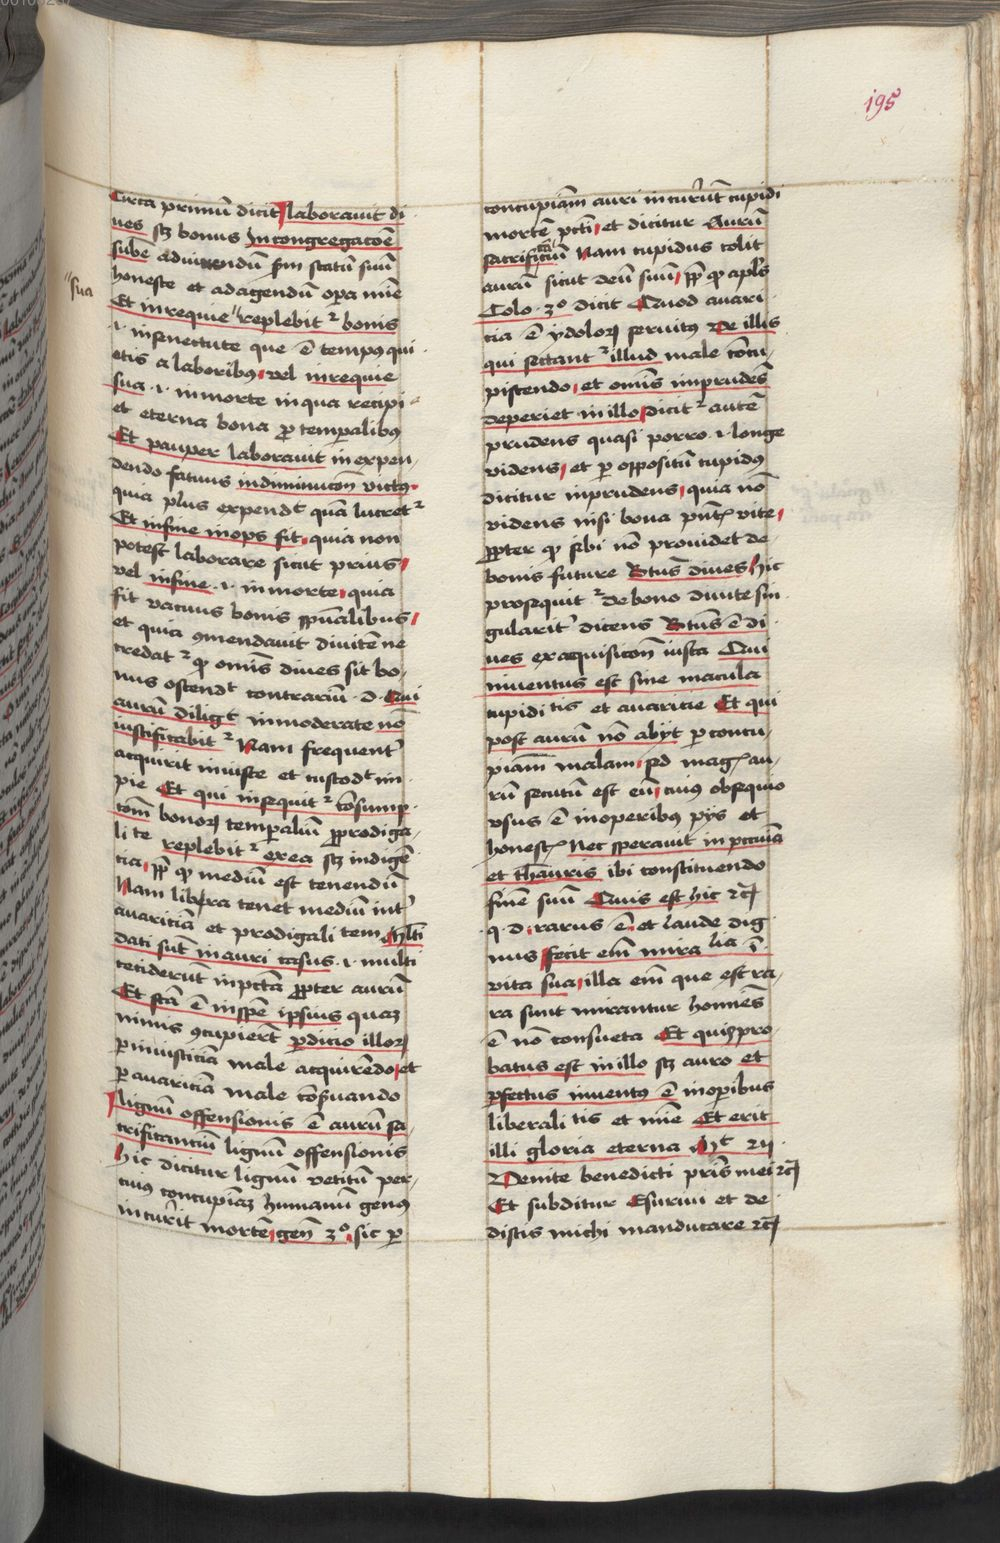 195
Circa primū dicit laboravit di
ves sz bonus In congregatōe
sube ad vivendū scdm statū suū
honeste et ad agendū opera mie
sua
Et in requie replebitur bonis
.i. in senectute que ē tempus qui
etis a laboribus vel in requie
sua .i. in morte in qua recipi
et eterna bona pro temporalibus
Et pauper laboravit in expen
dendo fatuus in diminucōn victus
quia plus expendit quā lucretur
Et in fine inops fit quia non
potest laborare sicut prius
vel in fine .i. in morte quia
fit vacuus bonis spūalibus
et quia cōmendavit divitē ne
credatur quod omis dives sit bo
nus ostendit contrariū .d. Qui
aurū diligit inmoderate nō
iustificabitur Nam frequenter
acquirit iniuste et custodit im
pie Et qui insequitur cōsump
tōm bonorum temporaliū prodiga
li te replebitur ex ea sz indigē
tia quod mediū est tenendū
Nam libera tenet mediū inter
avariciā et prodigali tem Multi
dati sūt in auri casus .i. multi
ceciderūt in pctā propter aurū
Et fctā ē in spēe ipsius quaz
nimis cōcupierēt perdicio illorum
per iniusticiā male acquirēdo et
per avariciā male cōservando
lignū offensionis ē aurū sa
crificanciū lignū offensionis
hic dicitur lignū vetitū per
cuius concupiaz humanū genus
incurrit mortē gen 3o sic per
concupiam auri incurrūt cupidi
mortē pcti et dicitur Aurū
sacrificanciū Nam cupidus colit
aurū sicut deū suū quod apls
Colo . 3o dicit Quod avari
cia ē ydolorum servitus De illis
qui sectantur illud male concu
piscendo et omis imprudēs
deperiet in illo dicitur autē
prudens quasi porro .i. longe
videns et per oppositū cupidus
dicitur inprudens quia nō
videns nisi bona pntis vite
propter quod sibi nō providet de
bonis future Btus dives Hic
prosequitur de bono divite sin
gulariter dicens Btus ē di
ves ex acquisicōn iusta Qui
inventus est sine macula
cupidi tis et avaricie Et qui
post aurū nō abijt per concu
piam malam sed magis au
rū secutū est eū cuius obsequio
usus ē in operibus pijs et
honestis Nec speravit in peccunia
et thauris ibi constituendo
finē suū Quis est hic etc
.q.d. rarus ē et laude dig
nus fecit enim mira lia in
vita sua illa enim que est ra
ra sunt mirantur homines
ē nō consueta Et quis pro
batus est in illo sz auro et
perfectus inventus ē in operibus
liberali tis et mie Et erit
illi gloria eterna Mt 25
Venite benedicti pris mei etc
Et subditur Esurivi et de
distis michi manducare etc